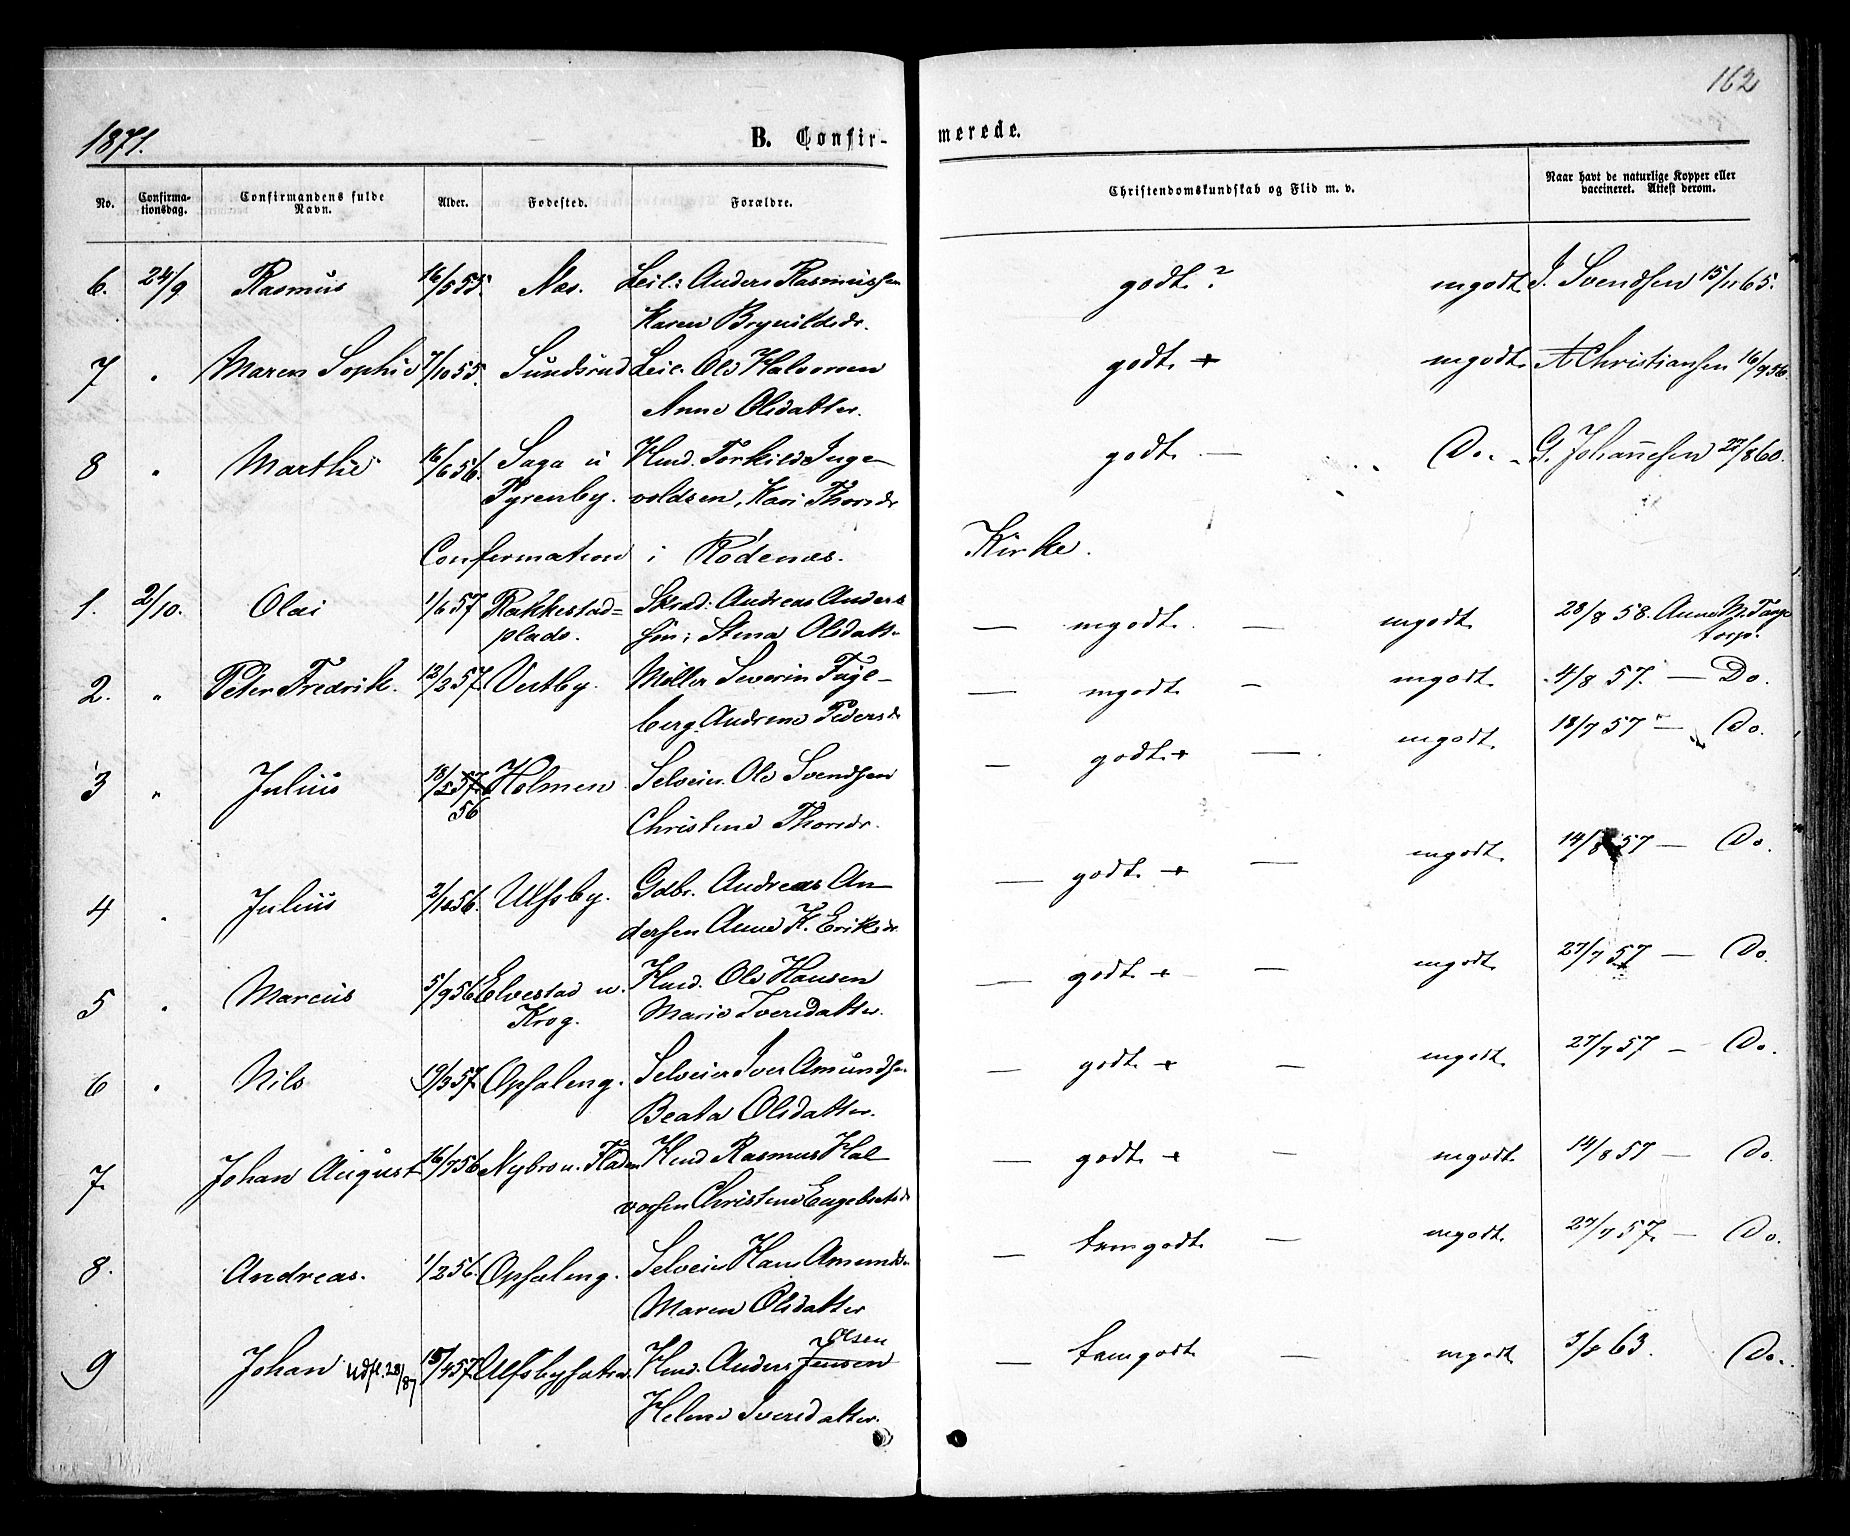 162
1871.
B. Confir-
merede.
No.
Confirma-
tionsdag.
Confirmandens fulde
Navn.
Alder.
Fødested.
Forældre.
Christendomskundskab og Flid m. v.
Naar havt de naturlige Kopper eller
vaccineret. Attest derom.
6. 24/9 Rasmus 16/5 55. Næs. Leil: Anders Rasmussen godt? mgodt J. Svendsen 15/11 65.
Karen Brynildsdr.
7 " Maren Sophie 7/10 55. Sundsrud Leil. Ole Halvorsen godt + mgodt. A Christiansen 16/9 56.
Anne Olsdatter.
8 " Marthe 16/6 56. Saga u Hmd. Torkild Inge- godt — Do. G. Johannesen 22/8 60.
Tyrenby. voldsen, Kari Thorsdr
Confirmation i Rødenæs. Kirke.
1. 2/10. Olai 1/6 57 Rakkestad= Skrad: Andreas Anders — mgodt. — mgodt 28/8 58. Anne M. Tasp
plads. sen; Stina Olsdatt. torp.
2. " Peter Fredrik. 12/2 57. Vestby. Møller Severin Fagl- — mgodt — mgodt. 4/8 57. — Do.
berg. Andrine Pedersdr
3 " Julius 18/5 57. Holmen Selveier. Ole Svendsen — godt + — mgodt. 18/7 57 — Do.
56
Christine Thorsdr.
4 " Julius 2/10 56. Ulfsby. Gdbr. Andreas An- — godt + — mgodt. 14/8 57 — Do.
dersen Anne K. Eriksdr
5 " Marcus 5/9 56. Elvestad u. Hmd. Ole Hansen — godt + — mgodt. 27/7 57 — Do.
Krog. Marie Iversdatter.
6 " Nils 19/3 57. Opsaleng. Selveier Iver Amundsen — godt + — mgodt. 27/7 57 — Do.
Beata Olsdatter.
7. Johan August 16/7 56 Nybro u. Fladen Hmd Rasmus Hal- — godt + — mgodt. 14/8 57 — Do.
vorsen Christine Engebretsdr
8. Andreas. 1/2 56. Opsaleng. Selveier Hans Amunds. — temgodt — mgodt. 27/7 57. — Do.
Maren Olsdatter
Olsen
9 Johan Udfl. 28/ 15/4 57 Ulfsbysatre. Hmd. Anders Jensen — temgodt — mgodt 3/8 63. Do.
87
Helene Iversdatter.